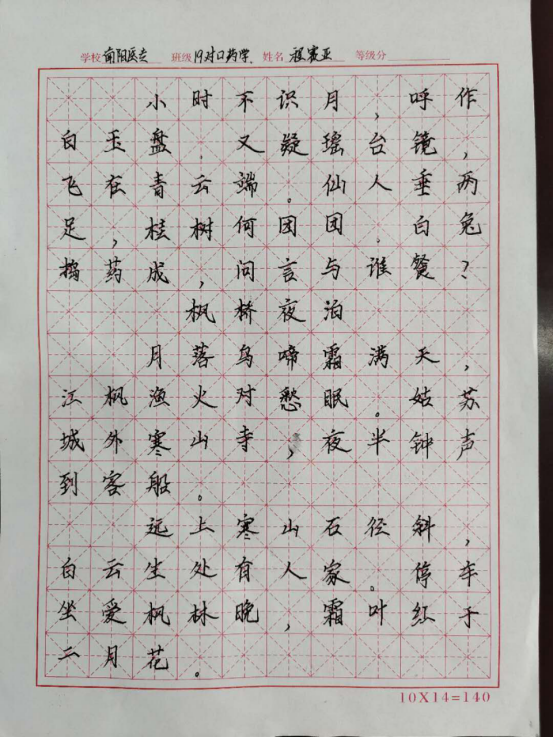 学校 南阳医专 班级 19对口药学 姓名 程赛亚 等级分
小时不识月，呼作
白玉盘.又疑瑶台镜，
飞在青云端。仙人垂两
足，桂树何团团.白兔
捣药成，问言与谁餐？
枫桥夜泊
月落乌啼霜满天，
江枫渔火对愁眠。姑苏
城外寒山寺，夜半钟声
到客船。
远上寒山石径斜，
白云生处有人家。停车
坐爱枫林晚，霜叶红于
二月花。
10X14=140